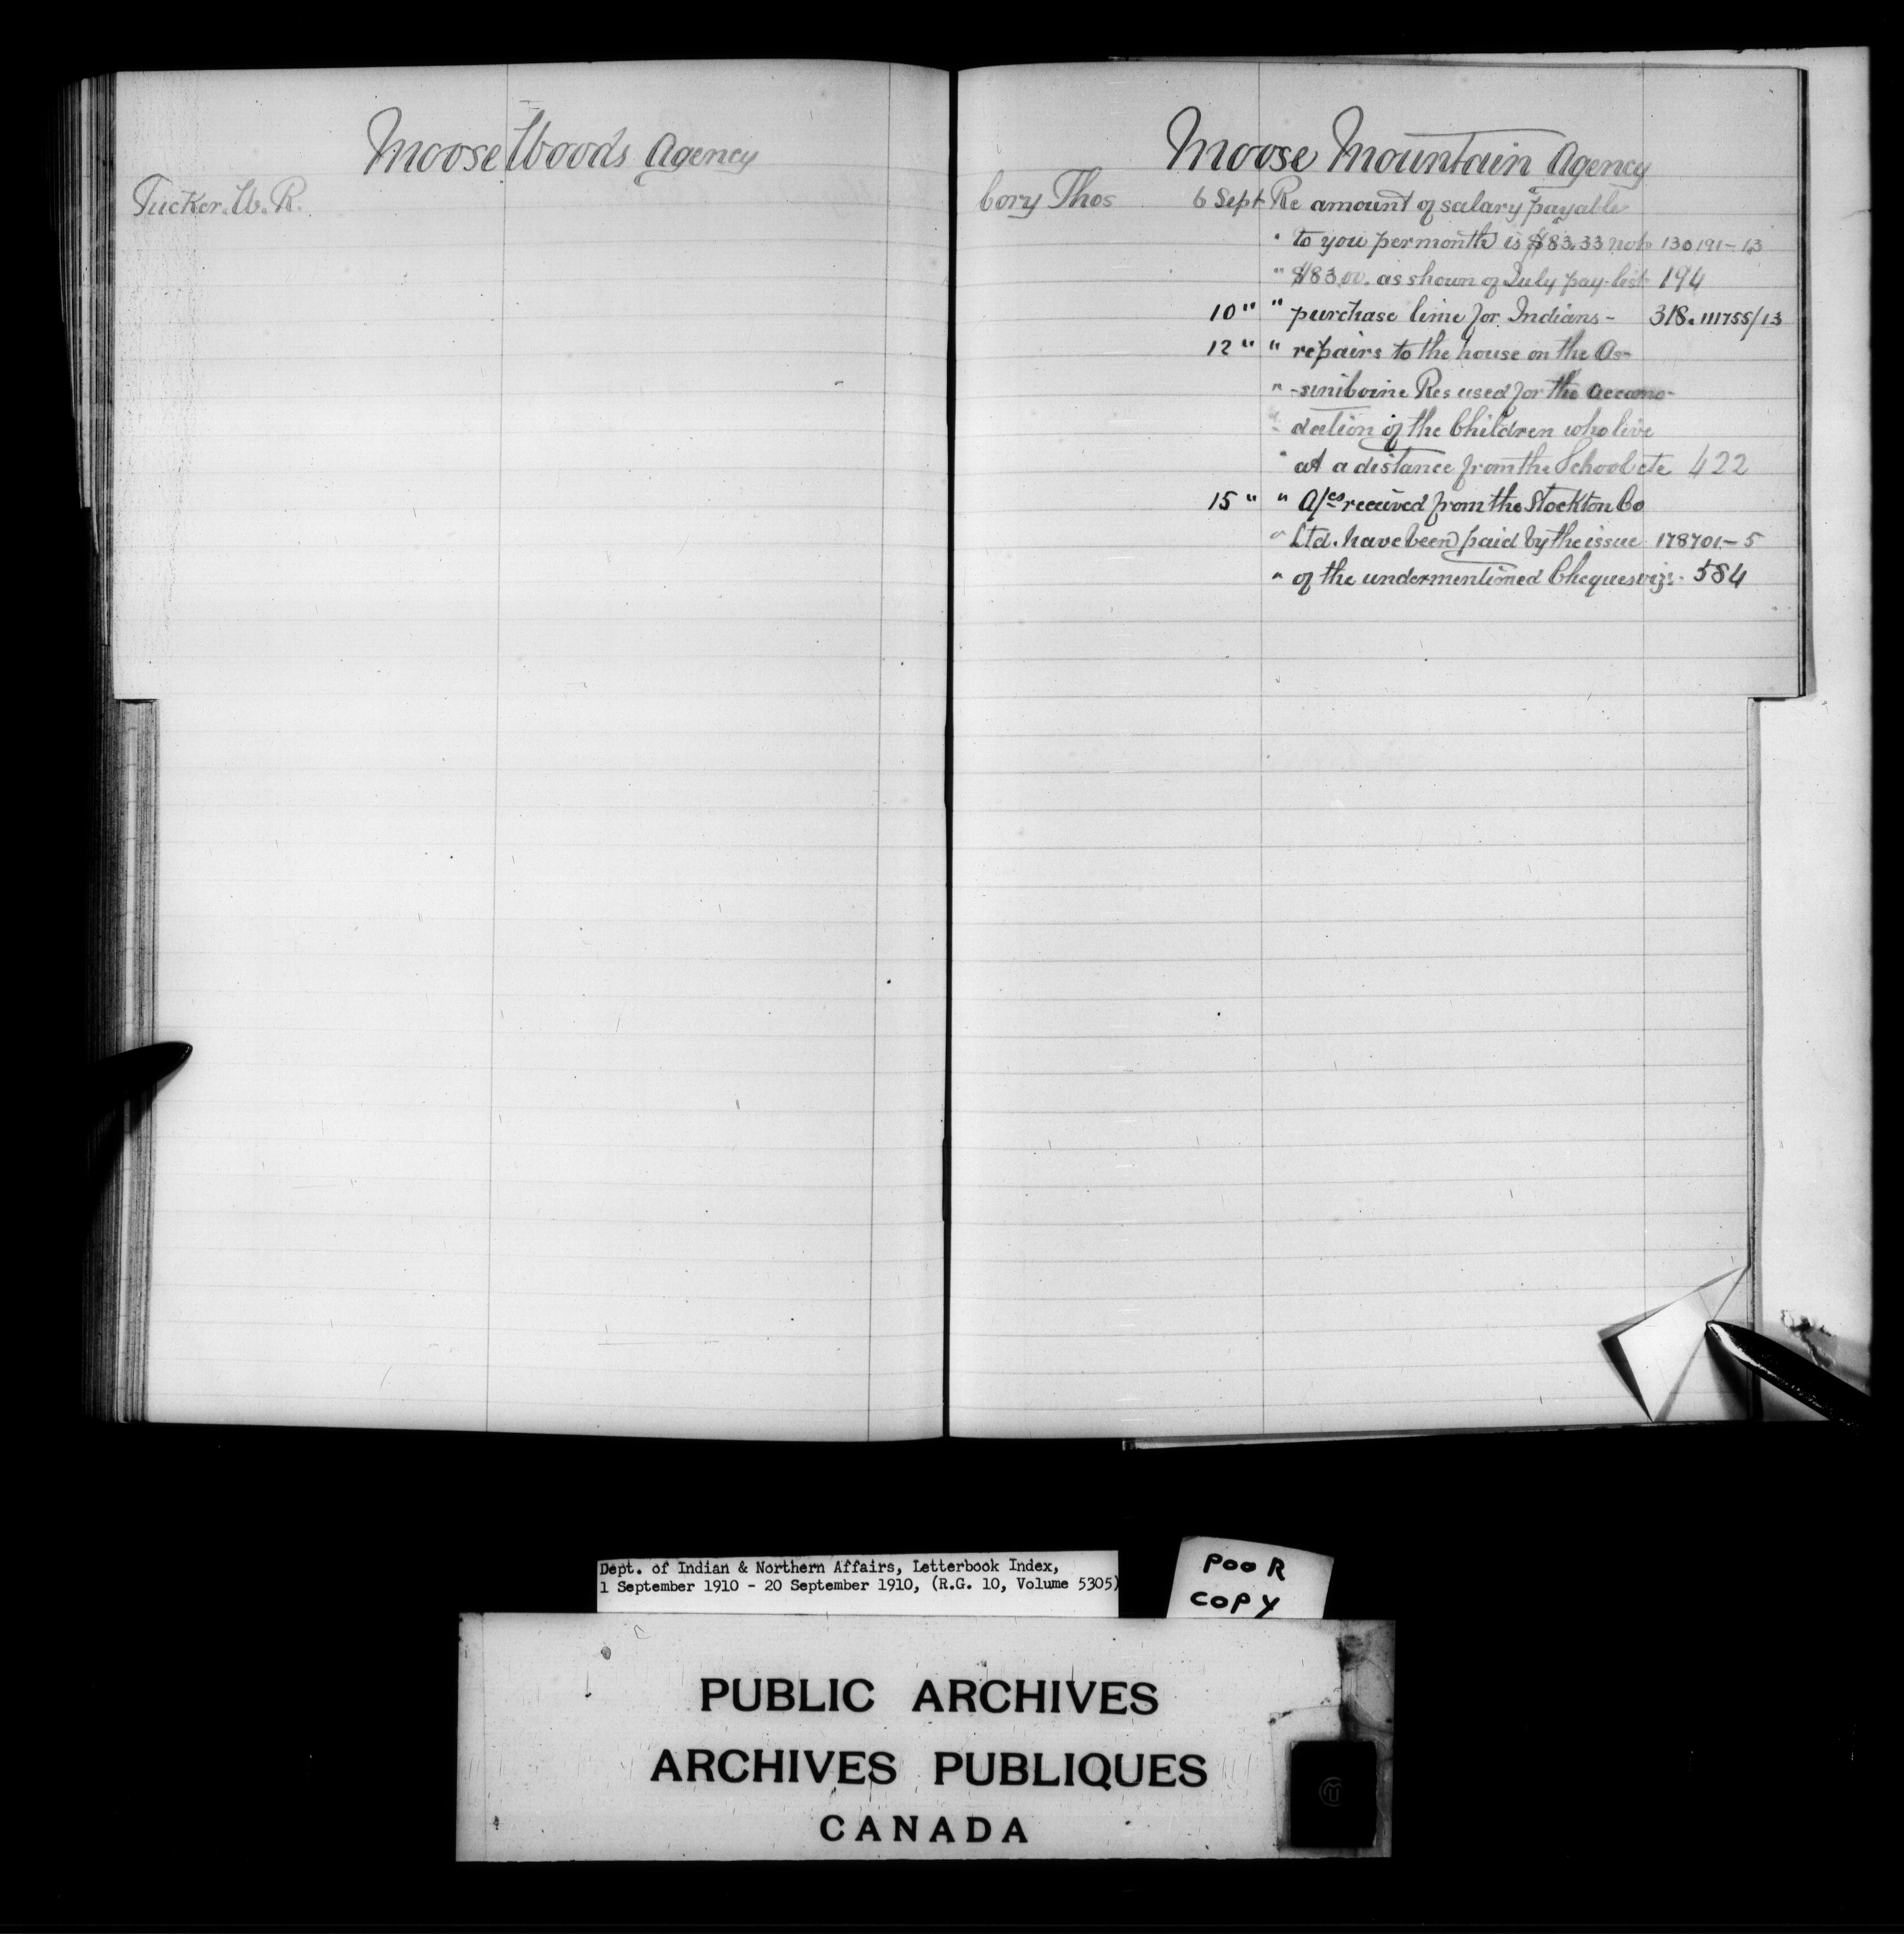 Moose Woods Agency
Tucker. W. R.
Moose Mountain Agency
Cory Thos 6 Sept Re amount of salary payable
" to you per month is $83.33 not 130191-13
" $83.00. as shown of July pay-list 194
10 " " purchase lime for Indians - 318. 111755/13
12 " " repairs to the house on the As-
" -siniboine Res used for the accomo-
" dation of the Children who live
" at a distance from the School etc 422
15 " " A/cs received from the Stockton Co
" Ltd. have been paid by the issue 178701-5
" of the undermentioned Cheques viz:- 584
Dept. of Indian & Northern Affairs, Letterbook Index,
1 September 1910 - 20 September 1910, (R.G. 10, Volume 5305)
POOR
COPY
PUBLIC ARCHIVES
ARCHIVES PUBLIQUES
CANADA